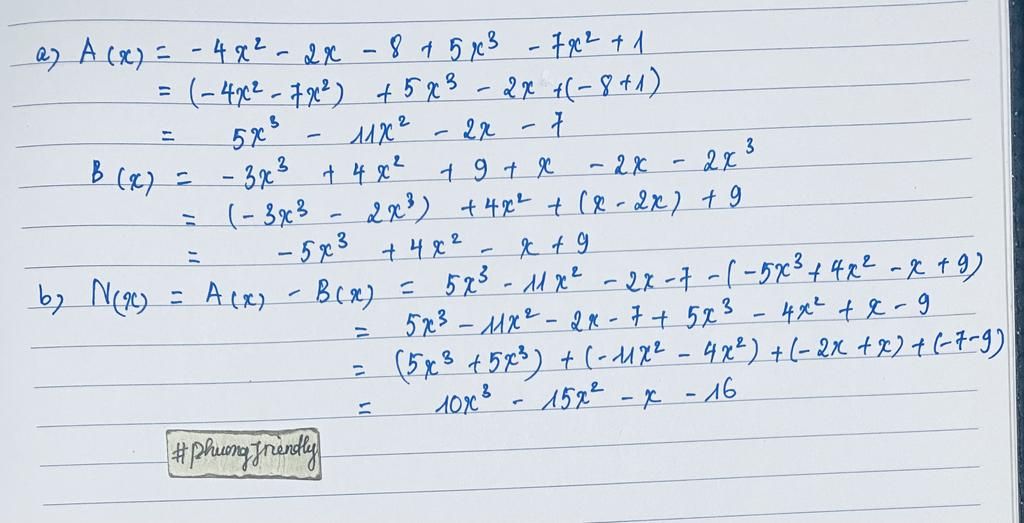 a) A(x) = -4x² - 2x - 8 + 5x³ - 7x² + 1
= (-4x² - 7x²) + 5x³ - 2x + (-8+1)
= 5x³ - 11x² - 2x - 7
B(x) = -3x³ + 4x² + 9 + x - 2x - 2x³
= (-3x³ - 2x³) + 4x² + (x - 2x) + 9
= -5x³ + 4x² - x + 9
b) N(x) = A(x) - B(x) = 5x³ - 11x² - 2x - 7 - (-5x³ + 4x² - x + 9)
= 5x³ - 11x² - 2x - 7 + 5x³ - 4x² + x - 9
= (5x³ + 5x³) + (-11x² - 4x²) + (-2x + x) + (-7-9)
= 10x³ - 15x² - x - 16
#phuongfriendly